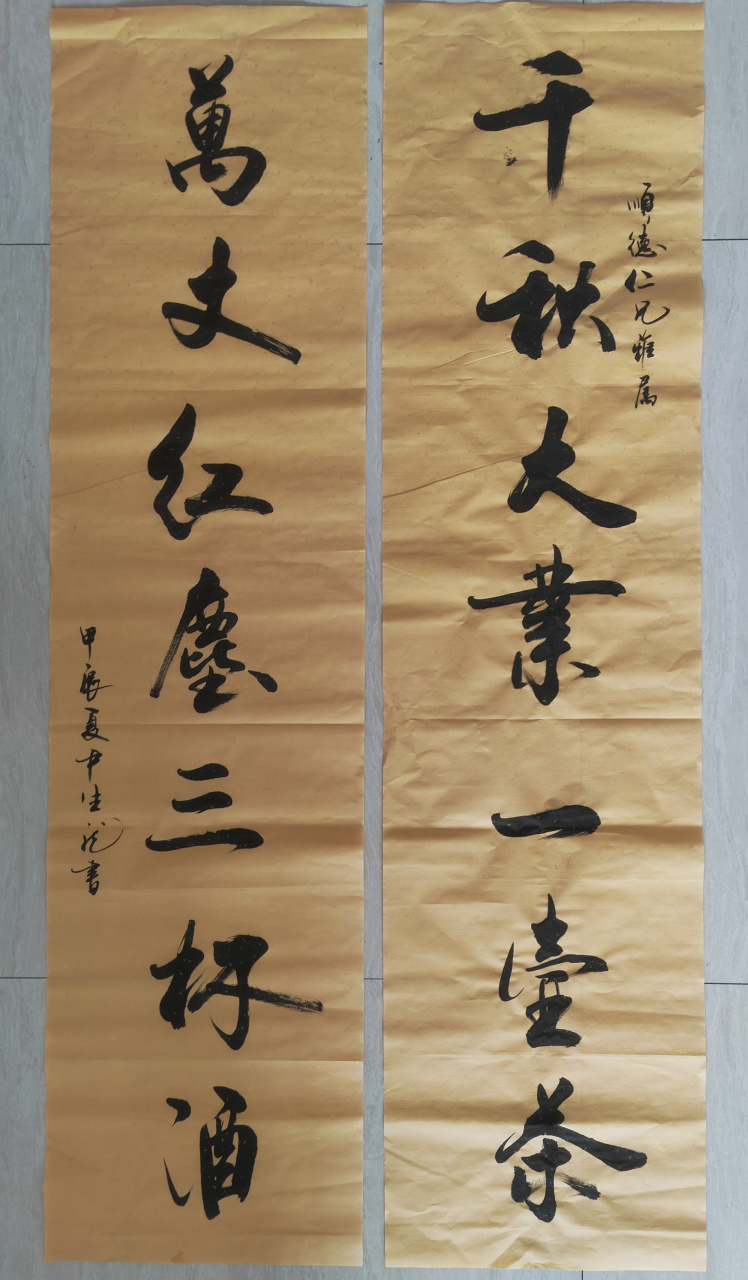 順德仁兄雅屬
千秋大業一壺茶
萬丈紅塵三杯酒
甲辰夏尹生龍書